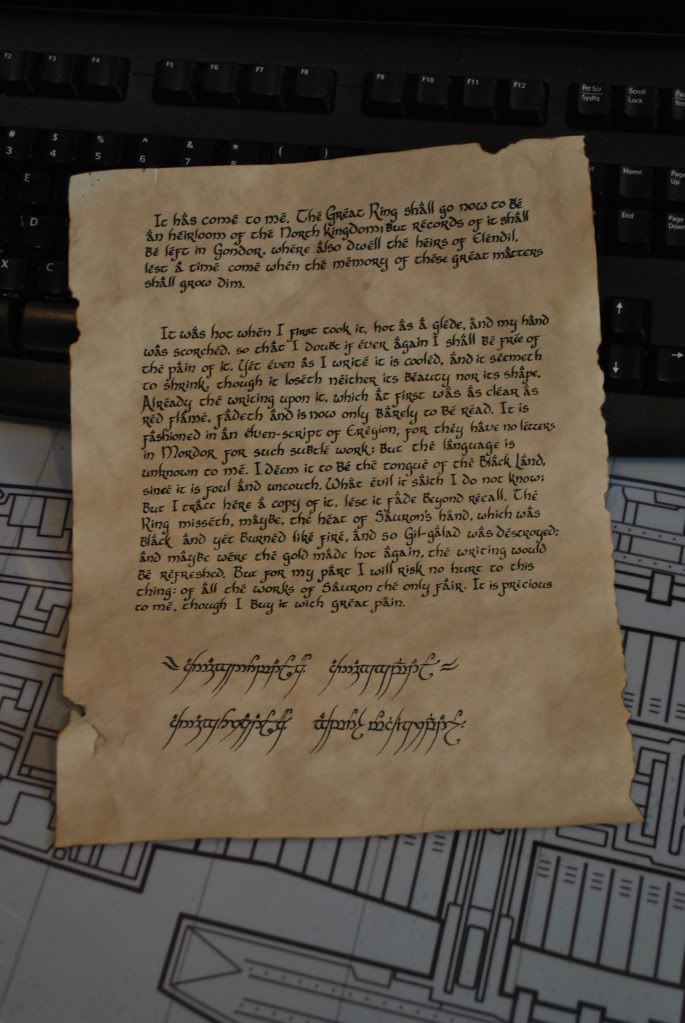 F2 F3 F4 F5 F6 F7 F8 F9 F10 F11 F12 Prt Scr Scroll
SysRq Lock
# $ % ^ & * ( )
3 4 5 6 7 8
E Home Page
Up
D End Page
Down
X C
↑
↓ →
It has come to me. The Great Ring shall go now to be
an heirloom of the North Kingdom; but records of it shall
be left in Gondor, where also dwell the heirs of Elendil,
lest a time come when the memory of these great matters
shall grow dim.
It was hot when I first took it, hot as a glede, and my hand
was scorched, so that I doubt if ever again I shall be free of
the pain of it. Yet even as I write it is cooled, and it seemeth
to shrink, though it loseth neither its beauty nor its shape.
Already the writing upon it, which at first was as clear as
red flame, fadeth and is now only barely to be read. It is
fashioned in an elven-script of Eregion, for they have no letters
in Mordor for such subtle work; but the language is
unknown to me. I deem it to be the tongue of the Black Land,
since it is foul and uncouth. What evil it saith I do not know;
but I trace here a copy of it, lest it fade beyond recall. The
Ring misseth, maybe, the heat of Sauron's hand, which was
black and yet burned like fire, and so Gil-galad was destroyed;
and maybe were the gold made hot again, the writing would
be refreshed. But for my part I will risk no hurt to this
thing: of all the works of Sauron the only fair. It is precious
to me, though I buy it with great pain.